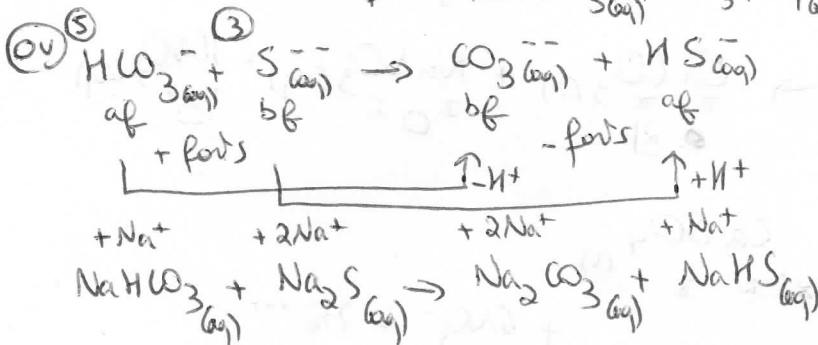 3(aq)
OU ⑤ HCO₃⁻(aq) + ③ S⁻⁻(aq) → CO₃⁻⁻(aq) + HS⁻(aq)
af bf bf af
+ forts - forts
-H⁺ +H⁺
+Na⁺ +2Na⁺ +2Na⁺ +Na⁺
NaHCO₃(aq) + Na₂S(aq) → Na₂CO₃(aq) + NaHS(aq)